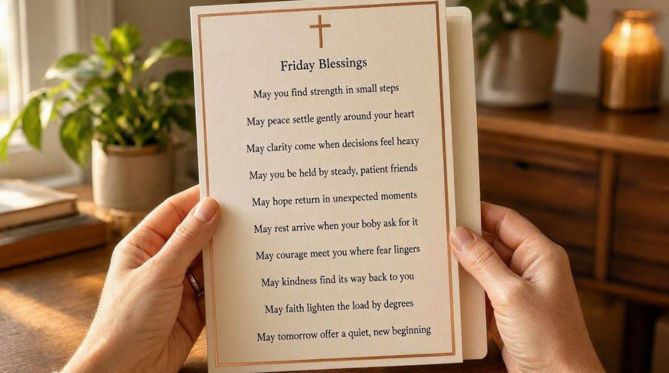 Friday Blessings
May you find strength in small steps
May peace settle gently around your heart
May clarity come when decisions feel heaxy
May you be held by steady, patient friends
May hope return in unexpected moments
May rest arrive when your boby ask for it
May courage meet you where fear lingers
May kindness find its way back to you
May faith lighten the load by degrees
May tomorrow offer a quiet, new beginning